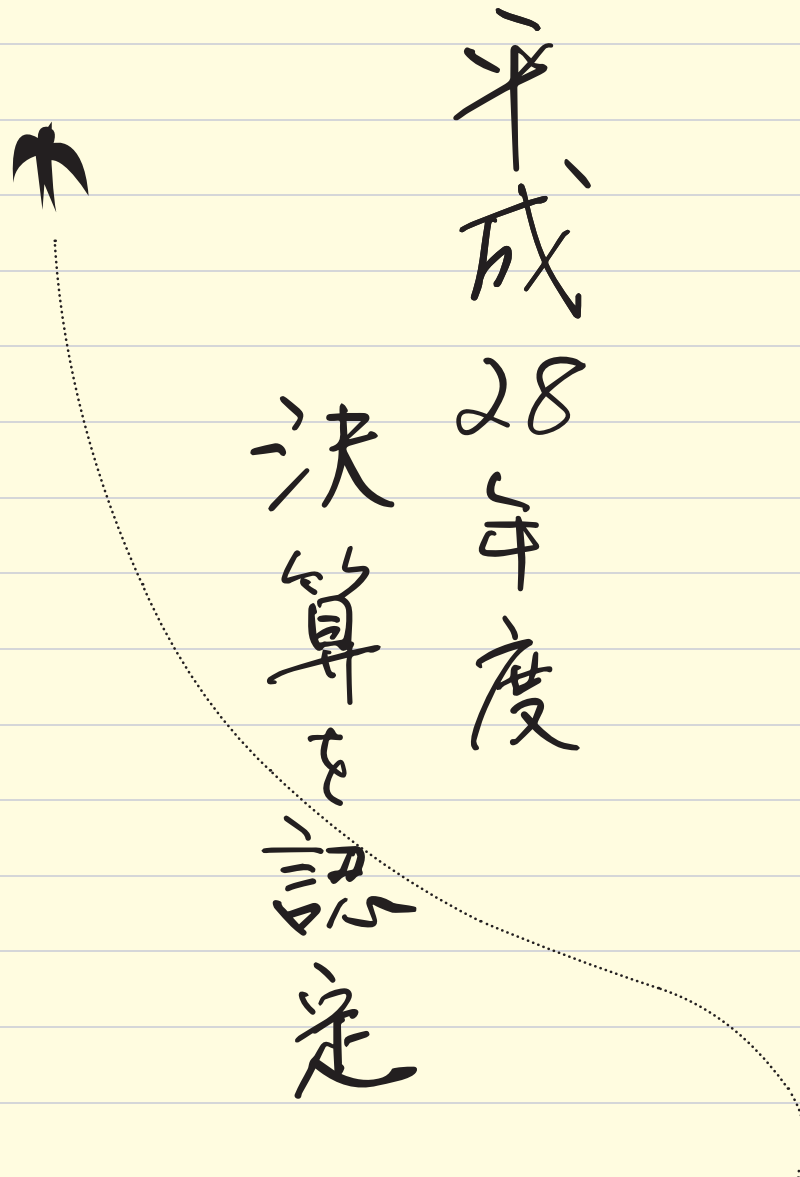 平成28年度
決算を認定